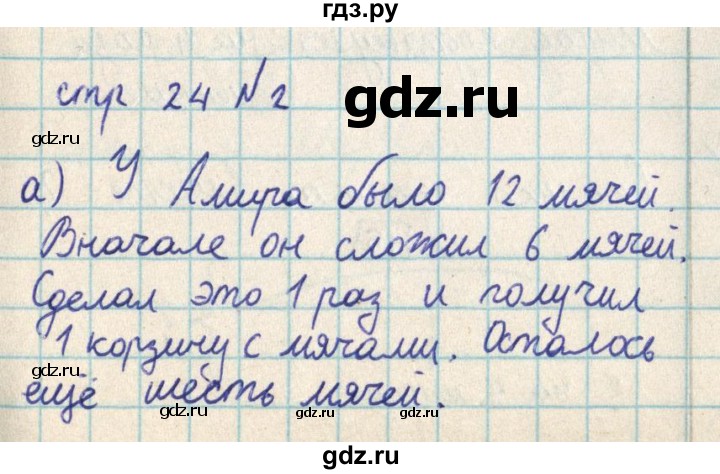 гдз.ру
стр 24 №2
gdz.ru
gdz.ru
gdz.ru
а) У Амира было 12 мячей.
gdz.ru
Вначале он сложил 6 мячей.
Сделал это 1 раз и получил
gdz.ru
gdz.ru
1 корзину с мячами. Осталось
ещё шесть мячей.
gdz.ru
gdz.ru
gdz.ru